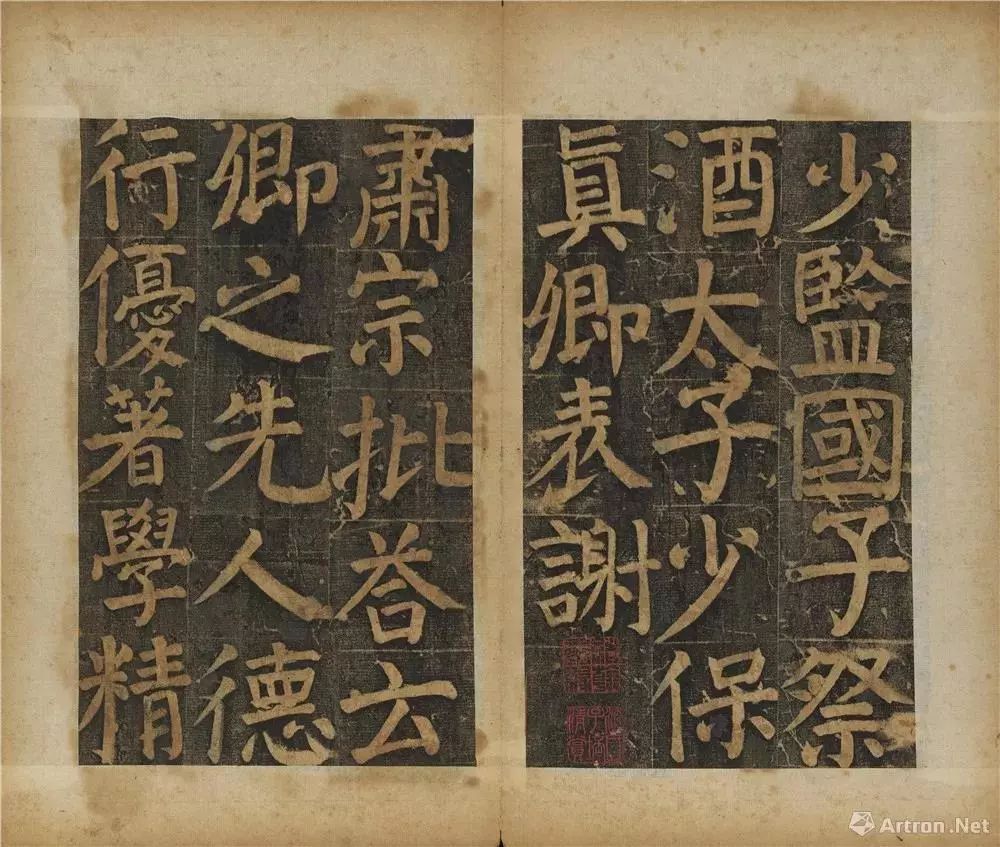 少監國子祭
酒太子少保
真卿表謝
肅宗批荅云
卿之先人德
行優著學精
Artron.Net